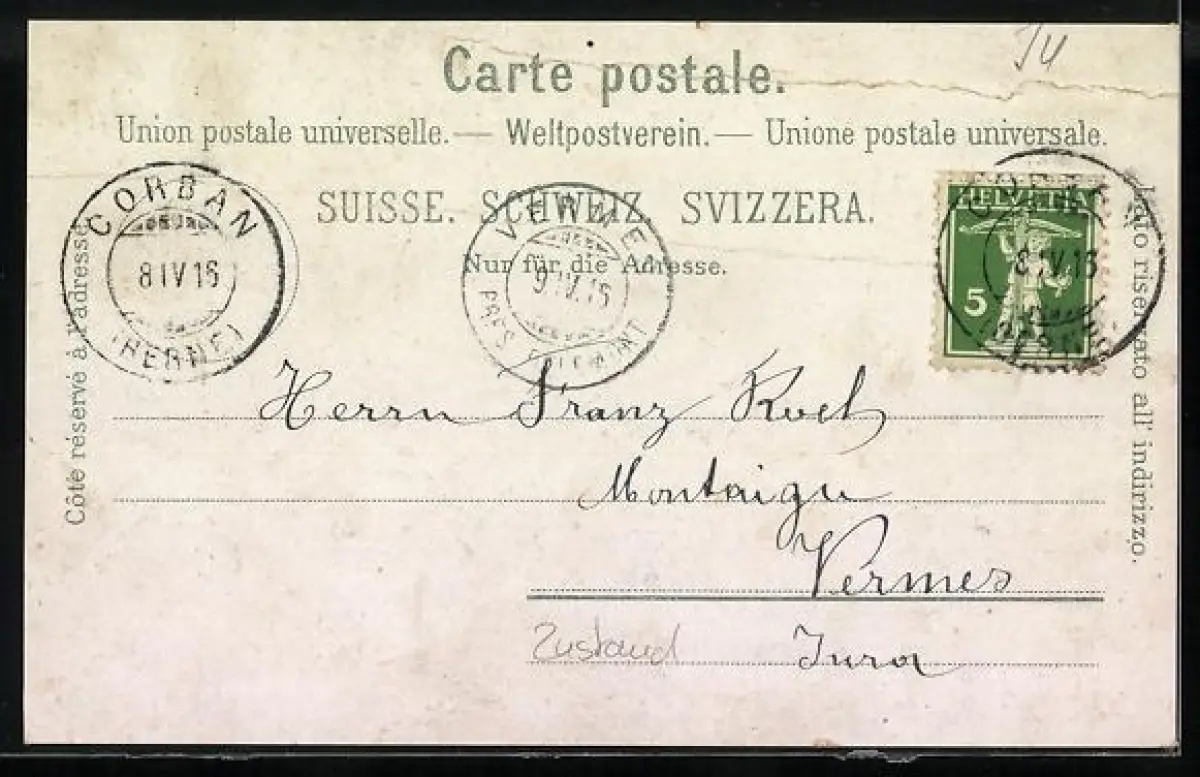 Carte postale.
Union postale universelle. — Weltpostverein. — Unione postale universale.
SUISSE. SCHWEIZ. SVIZZERA.
Nur für die Adresse.
Côté réservé à l'adresse.
CORBAN
8 IV 16
(BERNE)
VERMES
9.IV.16
PRÈS DELÉMONT
HELVETIA
5
CORBAN
8 IV 16
(BERNE)
Lato riservato all' indirizzo.
Herrn Franz Koch
Montaigu
Vermes
Jura
Zustand